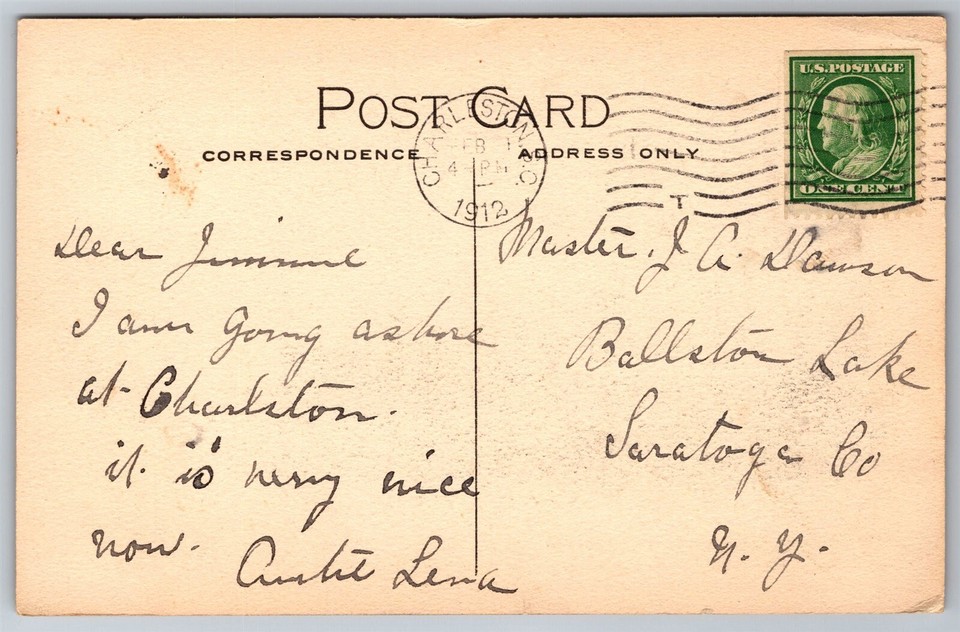 POST CARD
CORRESPONDENCE
ADDRESS ONLY
CHARLESTON, S.C.
FEB
4 PM
1912
T
U.S. POSTAGE
ONE CENT
Dear Jimmie
I am going ashore
at Charlston.
it is very nice
now.
Auntie Lena
Master. J A. Dawson
Ballston Lake
Saratoga Co
N. Y.